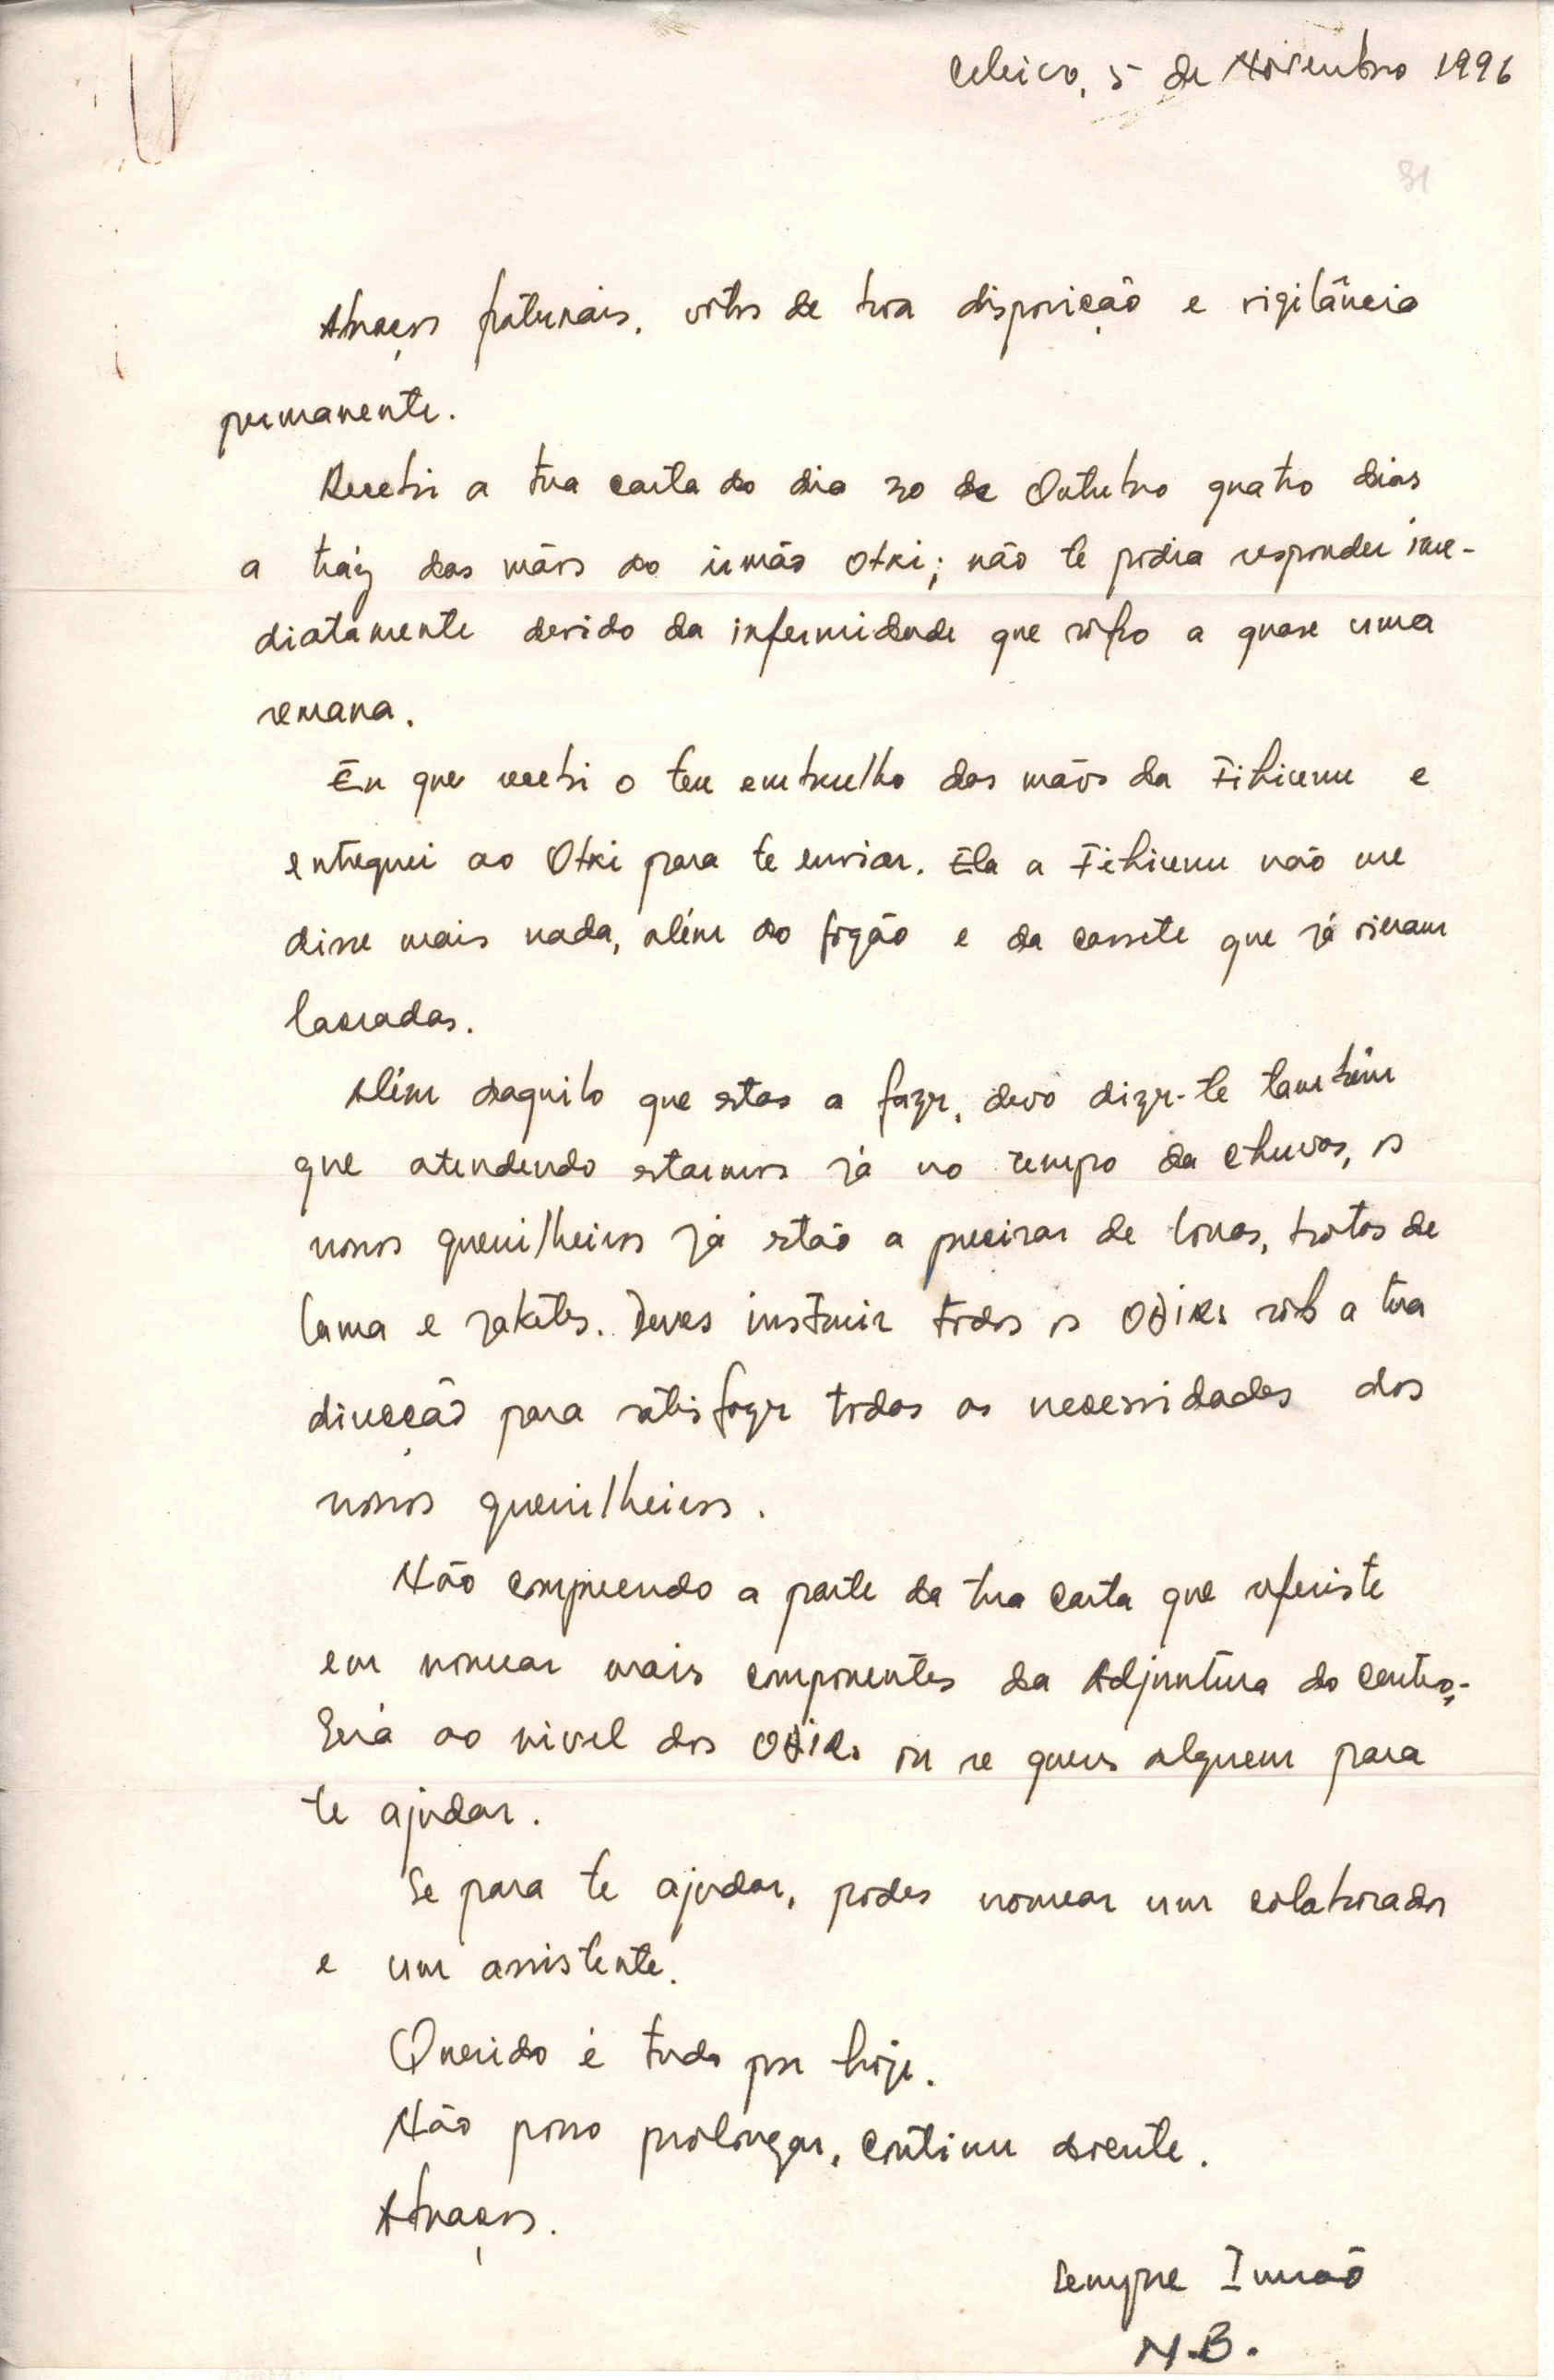 Celeico, 5 de Novembro 1996
81
Abraços fraternais, votos de boa disposição e vigilância
permanente.
Recebi a tua carta do dia 30 de Outubro quatro dias
a tráz das mãos do irmão Otki; não te podia responder ime-
diatamente devido da infermidade que sofro a quase uma
semana.
Eu que recebi o teu embrulho das mãos da Fihirenu e
entreguei ao Otki para te enviar. Ela a Fihirenu não me
disse mais nada, além do fogão e da cassete que já vieram
lacradas.
Além daquilo que estas a fazer, devo dizer-te também
que atendendo estarmos já no tempo da chuvas, os
nossos guerrilheiros já estão a precisar de lonas, botas de
lama e jakétes. Deves instruir todos os Odirs sob a tua
direcção para satisfazer todas as necessidades dos
nossos guerrilheiros.
Não compreendo a parte da tua carta que referiste
em nomear mais componentes da Adjuntura do Centro;-
Será ao nivel dos Odirs ou se queres alguem para
te ajudar.
Se para te ajudar, podes nomear um colaborador
e um assistente.
Querido é tudo por hoje.
Não posso prolongar, continu doente.
Abraços.
Sempre Irmão
N.B.